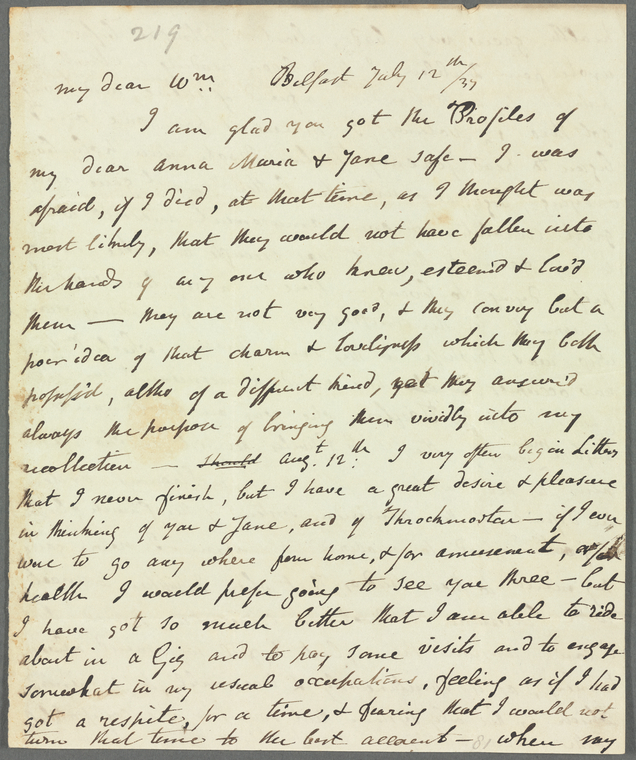 219
my dear Wm. Belfast July 12th/37
I am glad you got the Profiles of
my dear Anna Maria & Jane safe — I was
afraid, if I died, at that time, as I thought was
most likely, that they would not have fallen into
the hands of any one who knew, esteem'd & lov'd
them — They are not very good, & they convey but a
poor idea of that charm & loveliness which they both
possess'd, altho of a different kind, yet they answer'd
always the purpose of bringing them vividly into my
recollection — Should Augt. 12th. I very often begin Letters
that I never finish, but I have a great desire & pleasure
in thinking of you & Jane, and of Throckmorton — if I ever
were to go any where from home, & for amusement, or for
health I would prefer going to see you three — but
I have got so much better that I am able to ride
about in a Gig and to pay some visits and to engage
somewhat in my usual occupations, feeling as if I had
got a respite, for a time, & fearing that I would not
turn that time to the best account — when my